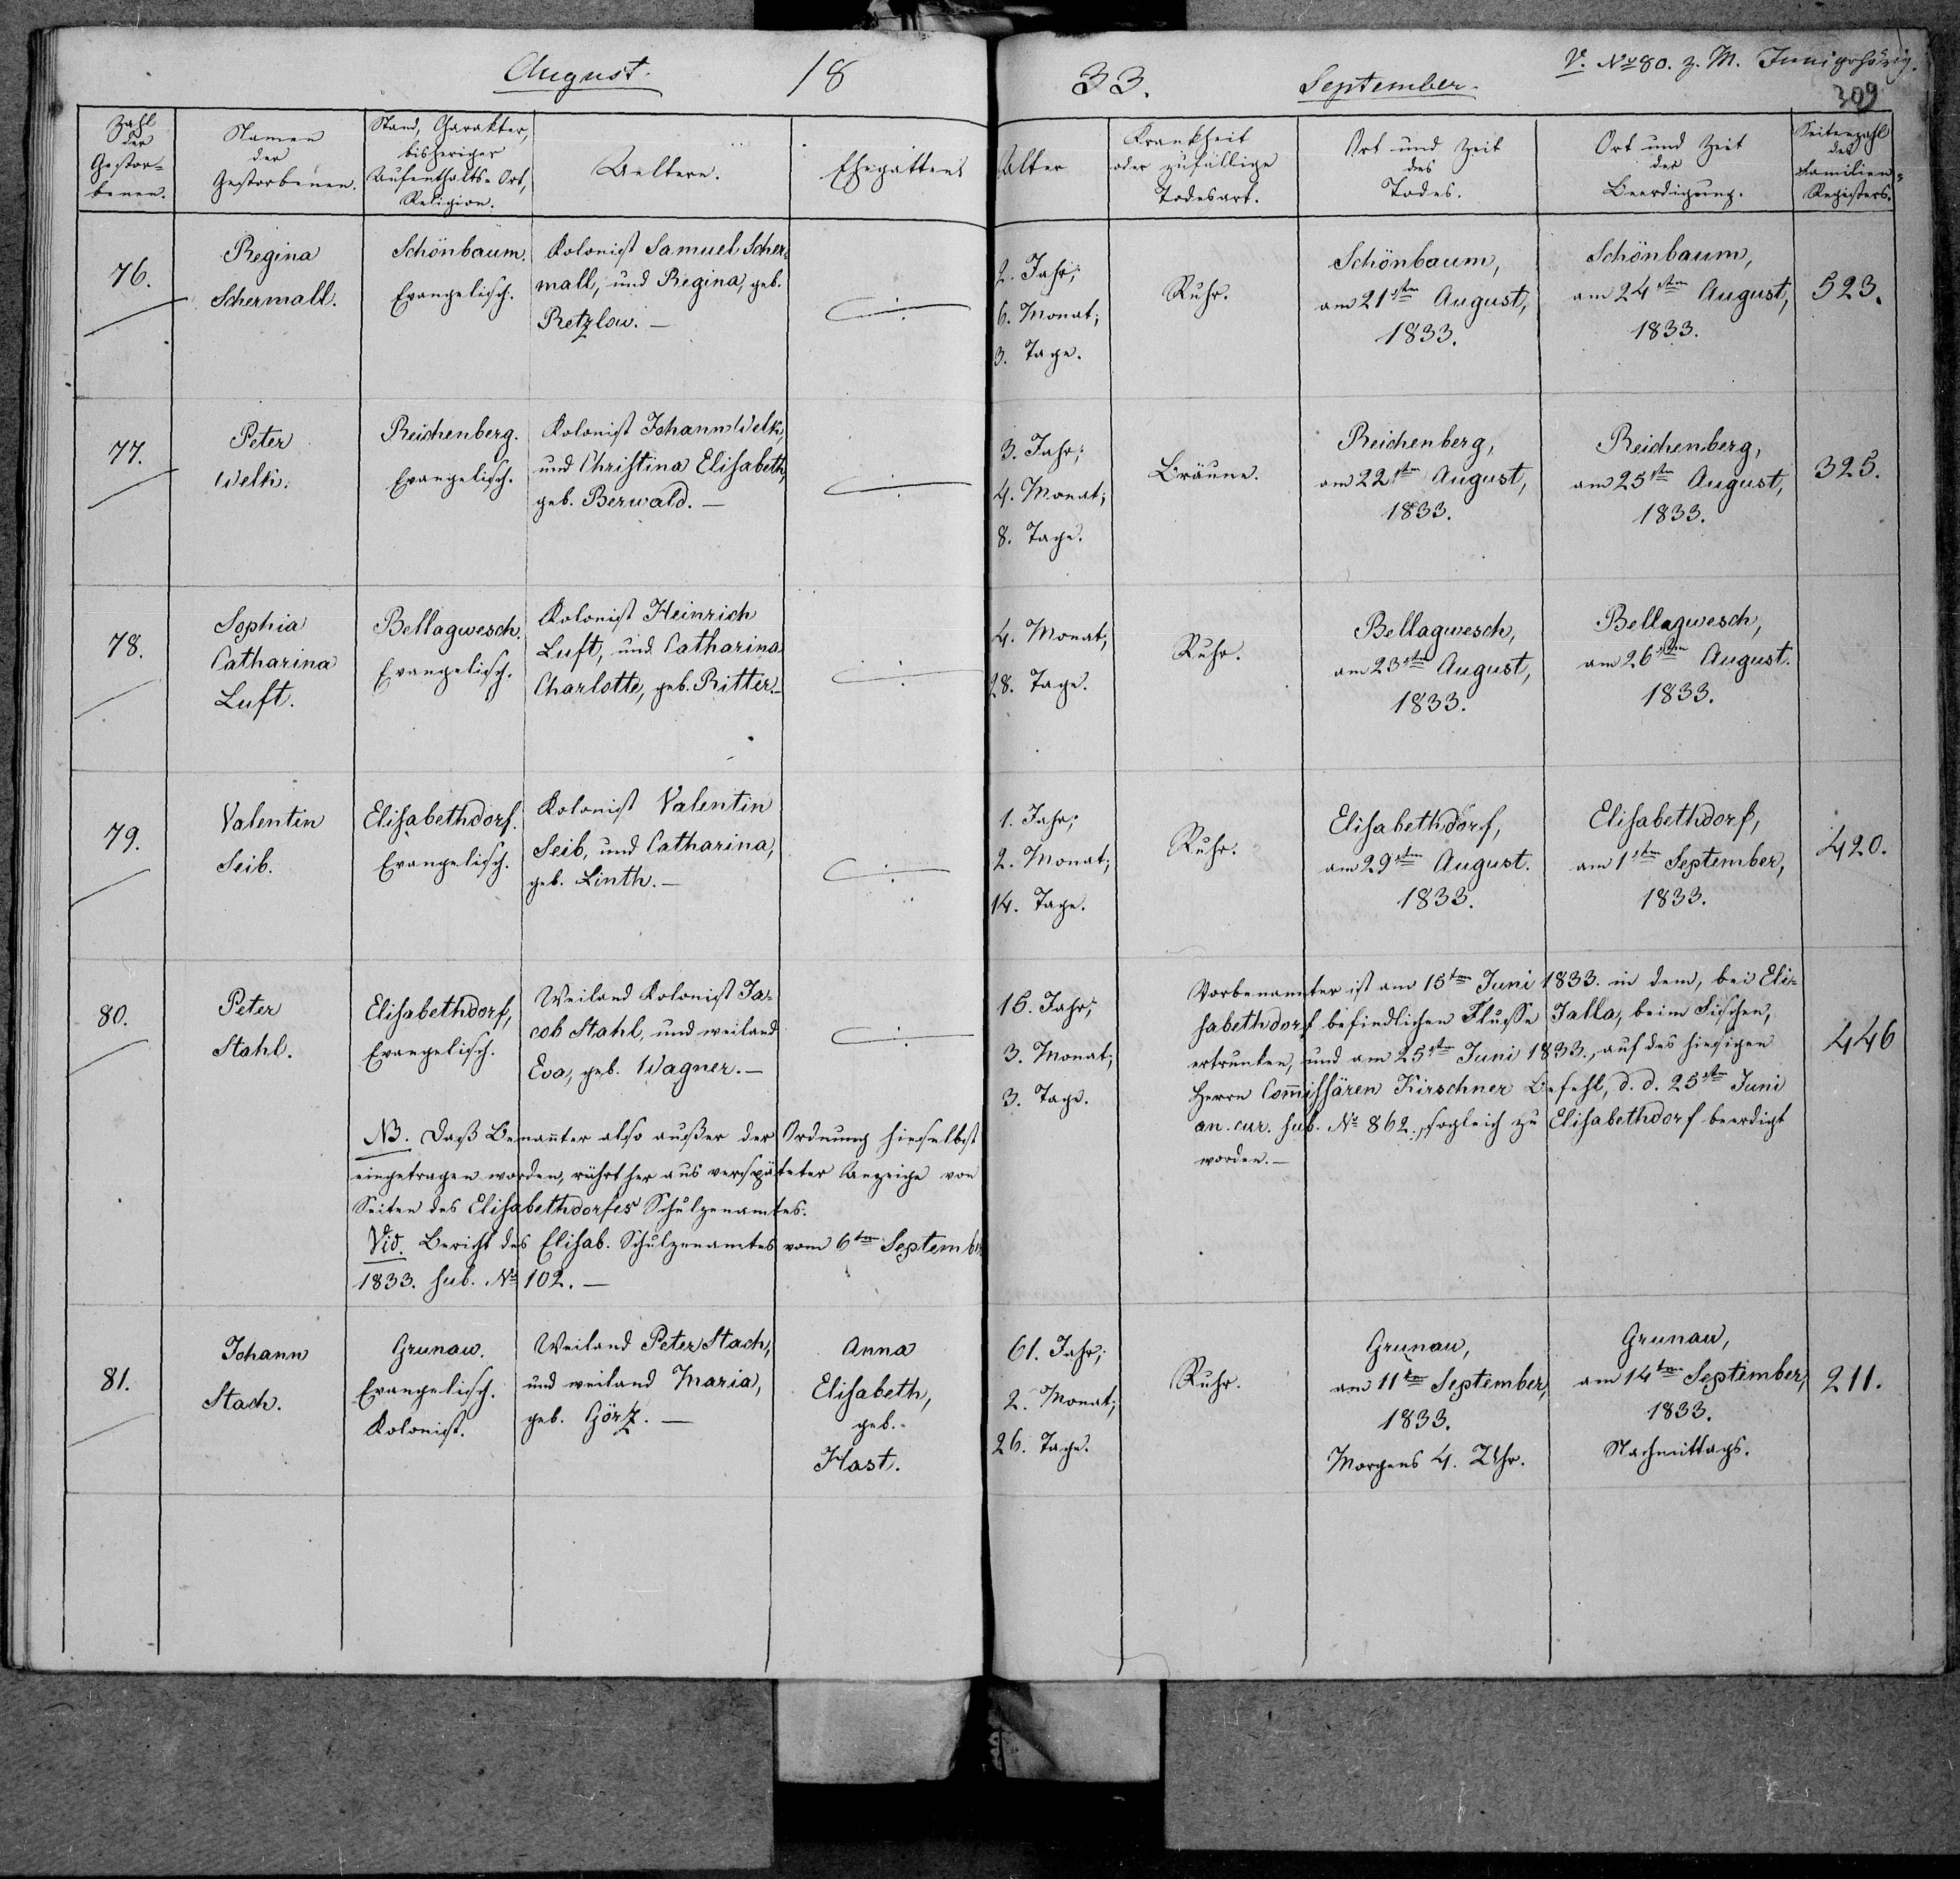 August.
18
33.
September.
V. No 80. z. M. Juni gehörig.
309
Zahl
der
Gestor-
benen.
Namen
der
Gestorbenen.
Stand, Carakter,
bisheriger
Aufenthalts-Ort,
Religion.
Aeltern.
Ehegatten.
Alter
Krankheit
oder zufällige
Todesart.
Ort und Zeit
des
Todes.
Ort und Zeit
der
Beerdigung.
Seitenzahl
des
Familien-
Registers.
76.
Regina
Schermall.
Schönbaum.
Evangelisch.
Kolonist Samuel Scher-
mall, und Regina, geb.
Retzlow. —
2. Jahr;
6. Monat;
3. Tage.
Ruhr.
Schönbaum,
am 21sten August,
1833.
Schönbaum,
am 24sten August,
1833.
523.
77.
Peter
Welk.
Reichenberg.
Evangelisch.
Kolonist Johann Welk,
und Christina Elisabeth,
geb. Berwald. —
3. Jahr;
4. Monat;
8. Tage.
Bräune.
Reichenberg,
am 22sten August,
1833.
Reichenberg,
am 25sten August,
1833.
325.
78.
Sophia
Catharina
Luft.
Bellagwesch.
Evangelisch.
Kolonist Heinrich
Luft, und Catharina
Charlotte, geb. Ritter. —
4. Monat;
28. Tage.
Ruhr.
Bellagwesch,
am 23sten August,
1833.
Bellagwesch,
am 26sten August.
1833.
79.
Valentin
Seib.
Elisabethdorf.
Evangelisch.
Kolonist Valentin
Seib, und Catharina,
geb. Linth. —
1. Jahr;
2. Monat;
14. Tage.
Ruhr.
Elisabethdorf,
am 29sten August.
1833.
Elisabethdorf,
am 1sten September,
1833.
420.
80.
Peter
Stahl.
Elisabethdorf,
Evangelisch.
Weiland Kolonist Ja-
cob Stahl, und weiland
Eva, geb. Wagner. —
15. Jahr;
3. Monat;
3. Tage.
Vorbenannter ist am 15ten Juni 1833. in dem, bei Eli-
sabethdorf befindlichen Flusse Jalla, beim Fischen,
ertrunken, und am 25sten Juni 1833., auf des hiesigen
Herrn Com̅issären Kirschner Befehl, d. d. 25sten Juni
an. cur. sub. No 862., sogleich zu Elisabethdorf beerdigt
worden. —
446
NB. Daß Benan̅ter also außer der Ordnung hieselbst
eingetragen worden, rührt her aus verspäteter Anzeige von
Seiten des Elisabethdorfer Schulzenamtes.
Vid. Bericht des Elisab. Schulzenamtes vom 6ten September
1833. sub. No 102. —
81.
Johann
Stach.
Grunau.
Evangelisch.
Kolonist.
Weiland Peter Stach,
und weiland Maria,
geb. Görz. —
Anna
Elisabeth,
geb.
Hast.
61. Jahr;
2. Monat;
26. Tage.
Ruhr.
Grunau,
am 11ten September,
1833.
Morgens 4. Uhr.
Grunau,
am 14ten September,
1833.
Nachmittags.
211.